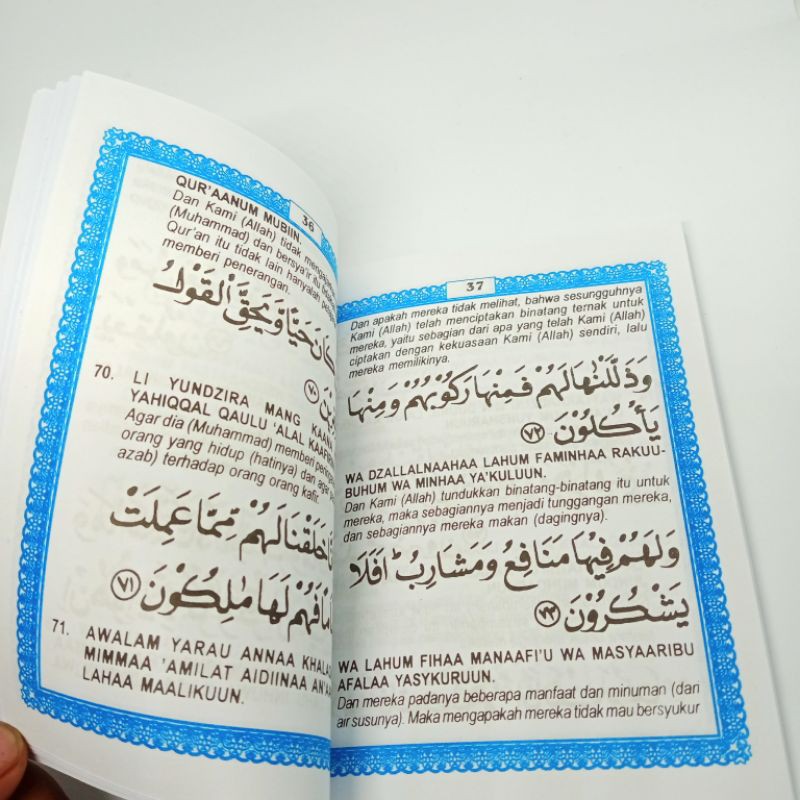 36
QUR'AANUM MUBIIN.
Dan Kami (Allah) tidak
(Muhammad) dan bersya'ir itu
Qur'an itu tidak lain hanyalah
memberi penerangan.
كَانَ حَيًّا وَّيَحِقَّ الْقَوْلُ
٧٠
70. LI YUNDZIRA MANG KAANA
YAHIQQAL QAULU 'ALAL
Agar dia (Muhammad) memberi
orang yang hidup (hatinya) dan agar
azab) terhadap orang orang kafir.
خَلَقْنَا لَهُمْ مِّمَّا عَمِلَتْ
فَهُمْ لَهَا مٰلِكُوْنَ ٧١
71. AWALAM YARAU ANNAA
MIMMAA 'AMILAT AIDIINAA
LAHAA MAALIKUUN.
37
Dan apakah mereka tidak melihat, bahwa sesungguhnya
Kami (Allah) telah menciptakan binatang ternak untuk
mereka, yaitu sebagian dari apa yang telah Kami (Allah)
ciptakan dengan kekuasaan Kami (Allah) sendiri, lalu
mereka memilikinya.
وَذَلَّلْنٰهَا لَهُمْ فَمِنْهَا رَكُوْبُهُمْ وَمِنْهَا
يَأْكُلُوْنَ ٧٢
WA DZALLALNAAHAA LAHUM FAMINHAA RAKUU-
BUHUM WA MINHAA YA'KULUUN.
Dan Kami (Allah) tundukkan binatang-binatang itu untuk
mereka, maka sebagiannya menjadi tunggangan mereka,
dan sebagiannya mereka makan (dagingnya).
وَلَهُمْ فِيْهَا مَنَافِعُ وَمَشَارِبُ اَفَلَا
يَشْكُرُوْنَ ٧٣
WA LAHUM FIHAA MANAAFI'U WA MASYAARIBU
AFALAA YASYKURUUN.
Dan mereka padanya beberapa manfaat dan minuman (dari
air susunya). Maka mengapakah mereka tidak mau bersyukur